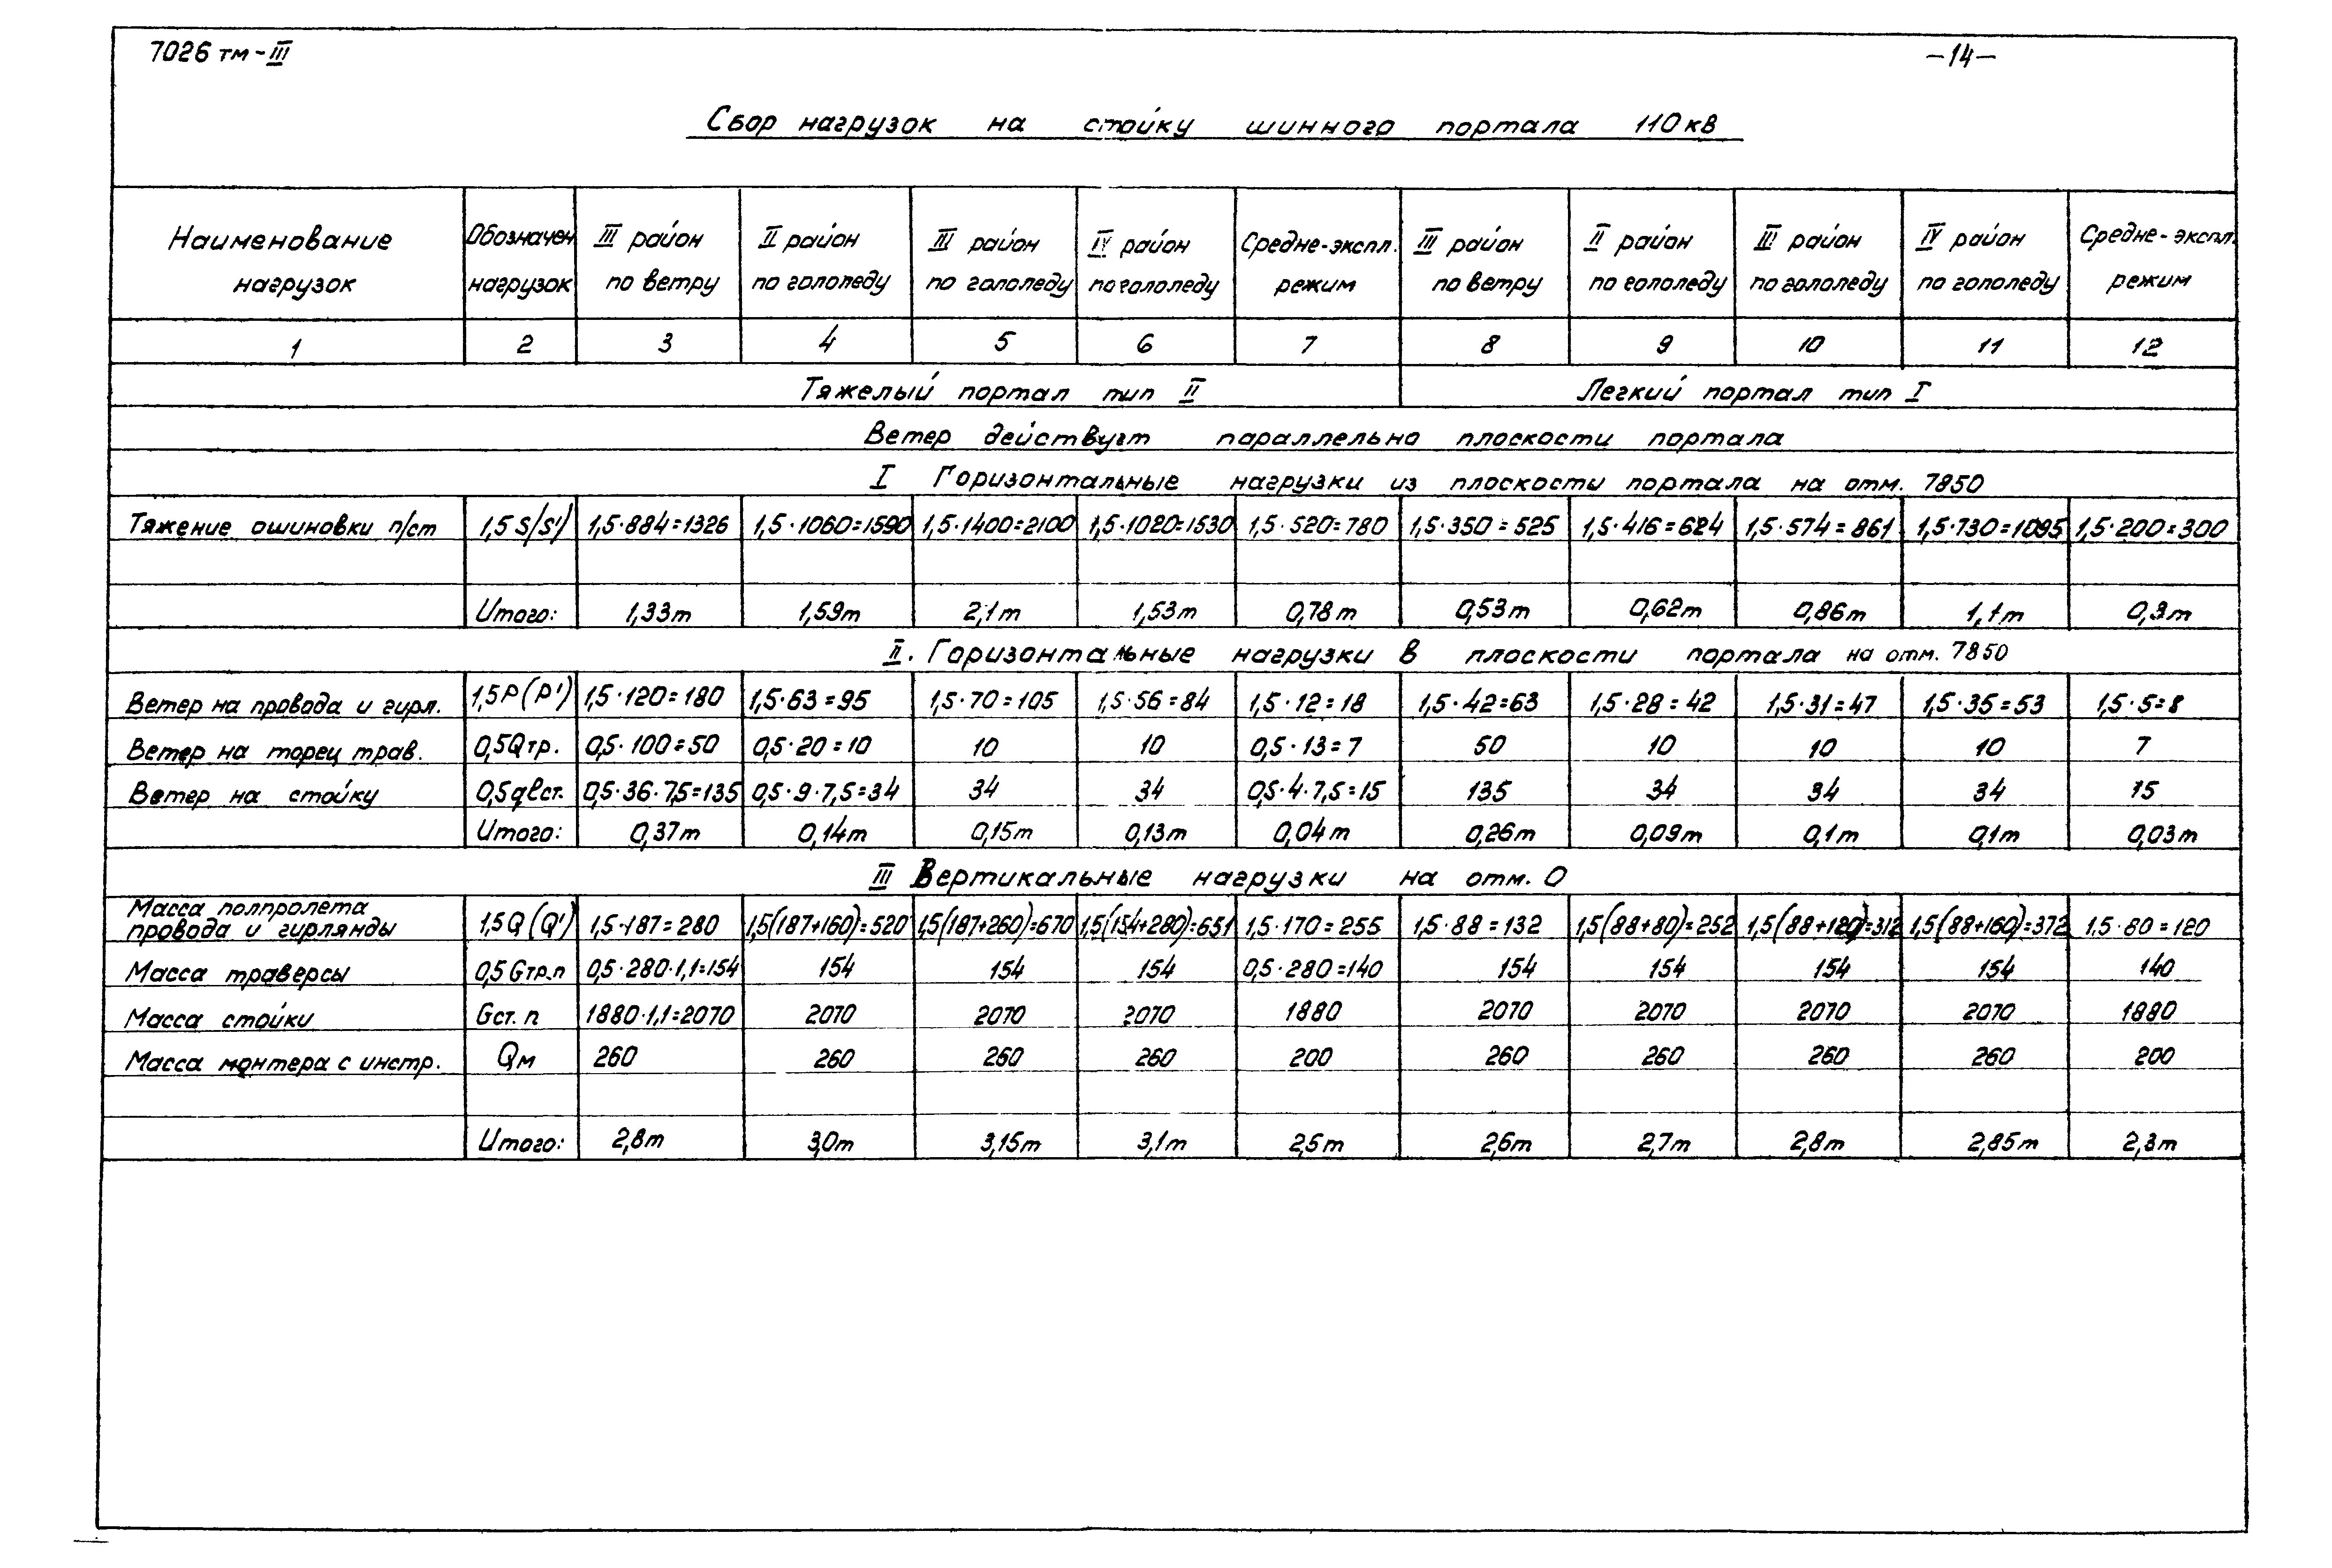 7026 тм-III
-14-
Сбор нагрузок на стойку шинного портала 110 кв
Наименование нагрузок | Обозначен нагрузок | III район по ветру | II район по гололеду | III район по гололеду | IV район по гололеду | Средне-экспл. режим | III район по ветру | II район по гололеду | III район по гололеду | IV район по гололеду | Средне-экспл. режим
1 | 2 | 3 | 4 | 5 | 6 | 7 | 8 | 9 | 10 | 11 | 12
Тяжелый портал тип II | Легкий портал тип I
Ветер действует параллельно плоскости портала
I Горизонтальные нагрузки из плоскости портала на отм. 7850
Тяжение ошиновки п/ст | 1,5 S/S') | 1,5·884=1326 | 1,5·1060=1590 | 1,5·1400=2100 | 1,5·1020=1530 | 1,5·520=780 | 1,5·350=525 | 1,5·416=624 | 1,5·574=861 | 1,5·730=1095 | 1,5·200=300
Итого: | 1,33т | 1,59т | 2,1т | 1,53т | 0,78т | 0,53т | 0,62т | 0,86т | 1,1т | 0,3т
II. Горизонтальные нагрузки в плоскости портала на отм. 7850
Ветер на провода и гирл. | 1,5P(P') | 1,5·120=180 | 1,5·63=95 | 1,5·70=105 | 1,5·56=84 | 1,5·12=18 | 1,5·42=63 | 1,5·28=42 | 1,5·31=47 | 1,5·35=53 | 1,5·5=8
Ветер на торец трав. | 0,5Qтр. | 0,5·100=50 | 0,5·20=10 | 10 | 10 | 0,5·13=7 | 50 | 10 | 10 | 10 | 7
Ветер на стойку | 0,5qℓст. | 0,5·36·7,5=135 | 0,5·9·7,5=34 | 34 | 34 | 0,5·4·7,5=15 | 135 | 34 | 34 | 34 | 15
Итого: | 0,37т | 0,14т | 0,15т | 0,13т | 0,04т | 0,26т | 0,09т | 0,1т | 0,1т | 0,03т
III Вертикальные нагрузки на отм. 0
Масса полпролета провода и гирлянды | 1,5Q(Q') | 1,5·187=280 | 1,5(187+160)=520 | 1,5(187+260)=670 | 1,5(154+280)=651 | 1,5·170=255 | 1,5·88=132 | 1,5(88+80)=252 | 1,5(88+120)=312 | 1,5(88+160)=372 | 1,5·80=120
Масса траверсы | 0,5Gтр.п | 0,5·280·1,1=154 | 154 | 154 | 154 | 0,5·280=140 | 154 | 154 | 154 | 154 | 140
Масса стойки | Gст.п | 1880·1,1=2070 | 2070 | 2070 | 2070 | 1880 | 2070 | 2070 | 2070 | 2070 | 1880
Масса монтера с инстр. | Qм | 260 | 260 | 260 | 260 | 200 | 260 | 260 | 260 | 260 | 200
Итого: | 2,8т | 3,0т | 3,15т | 3,1т | 2,5т | 2,6т | 2,7т | 2,8т | 2,85т | 2,3т